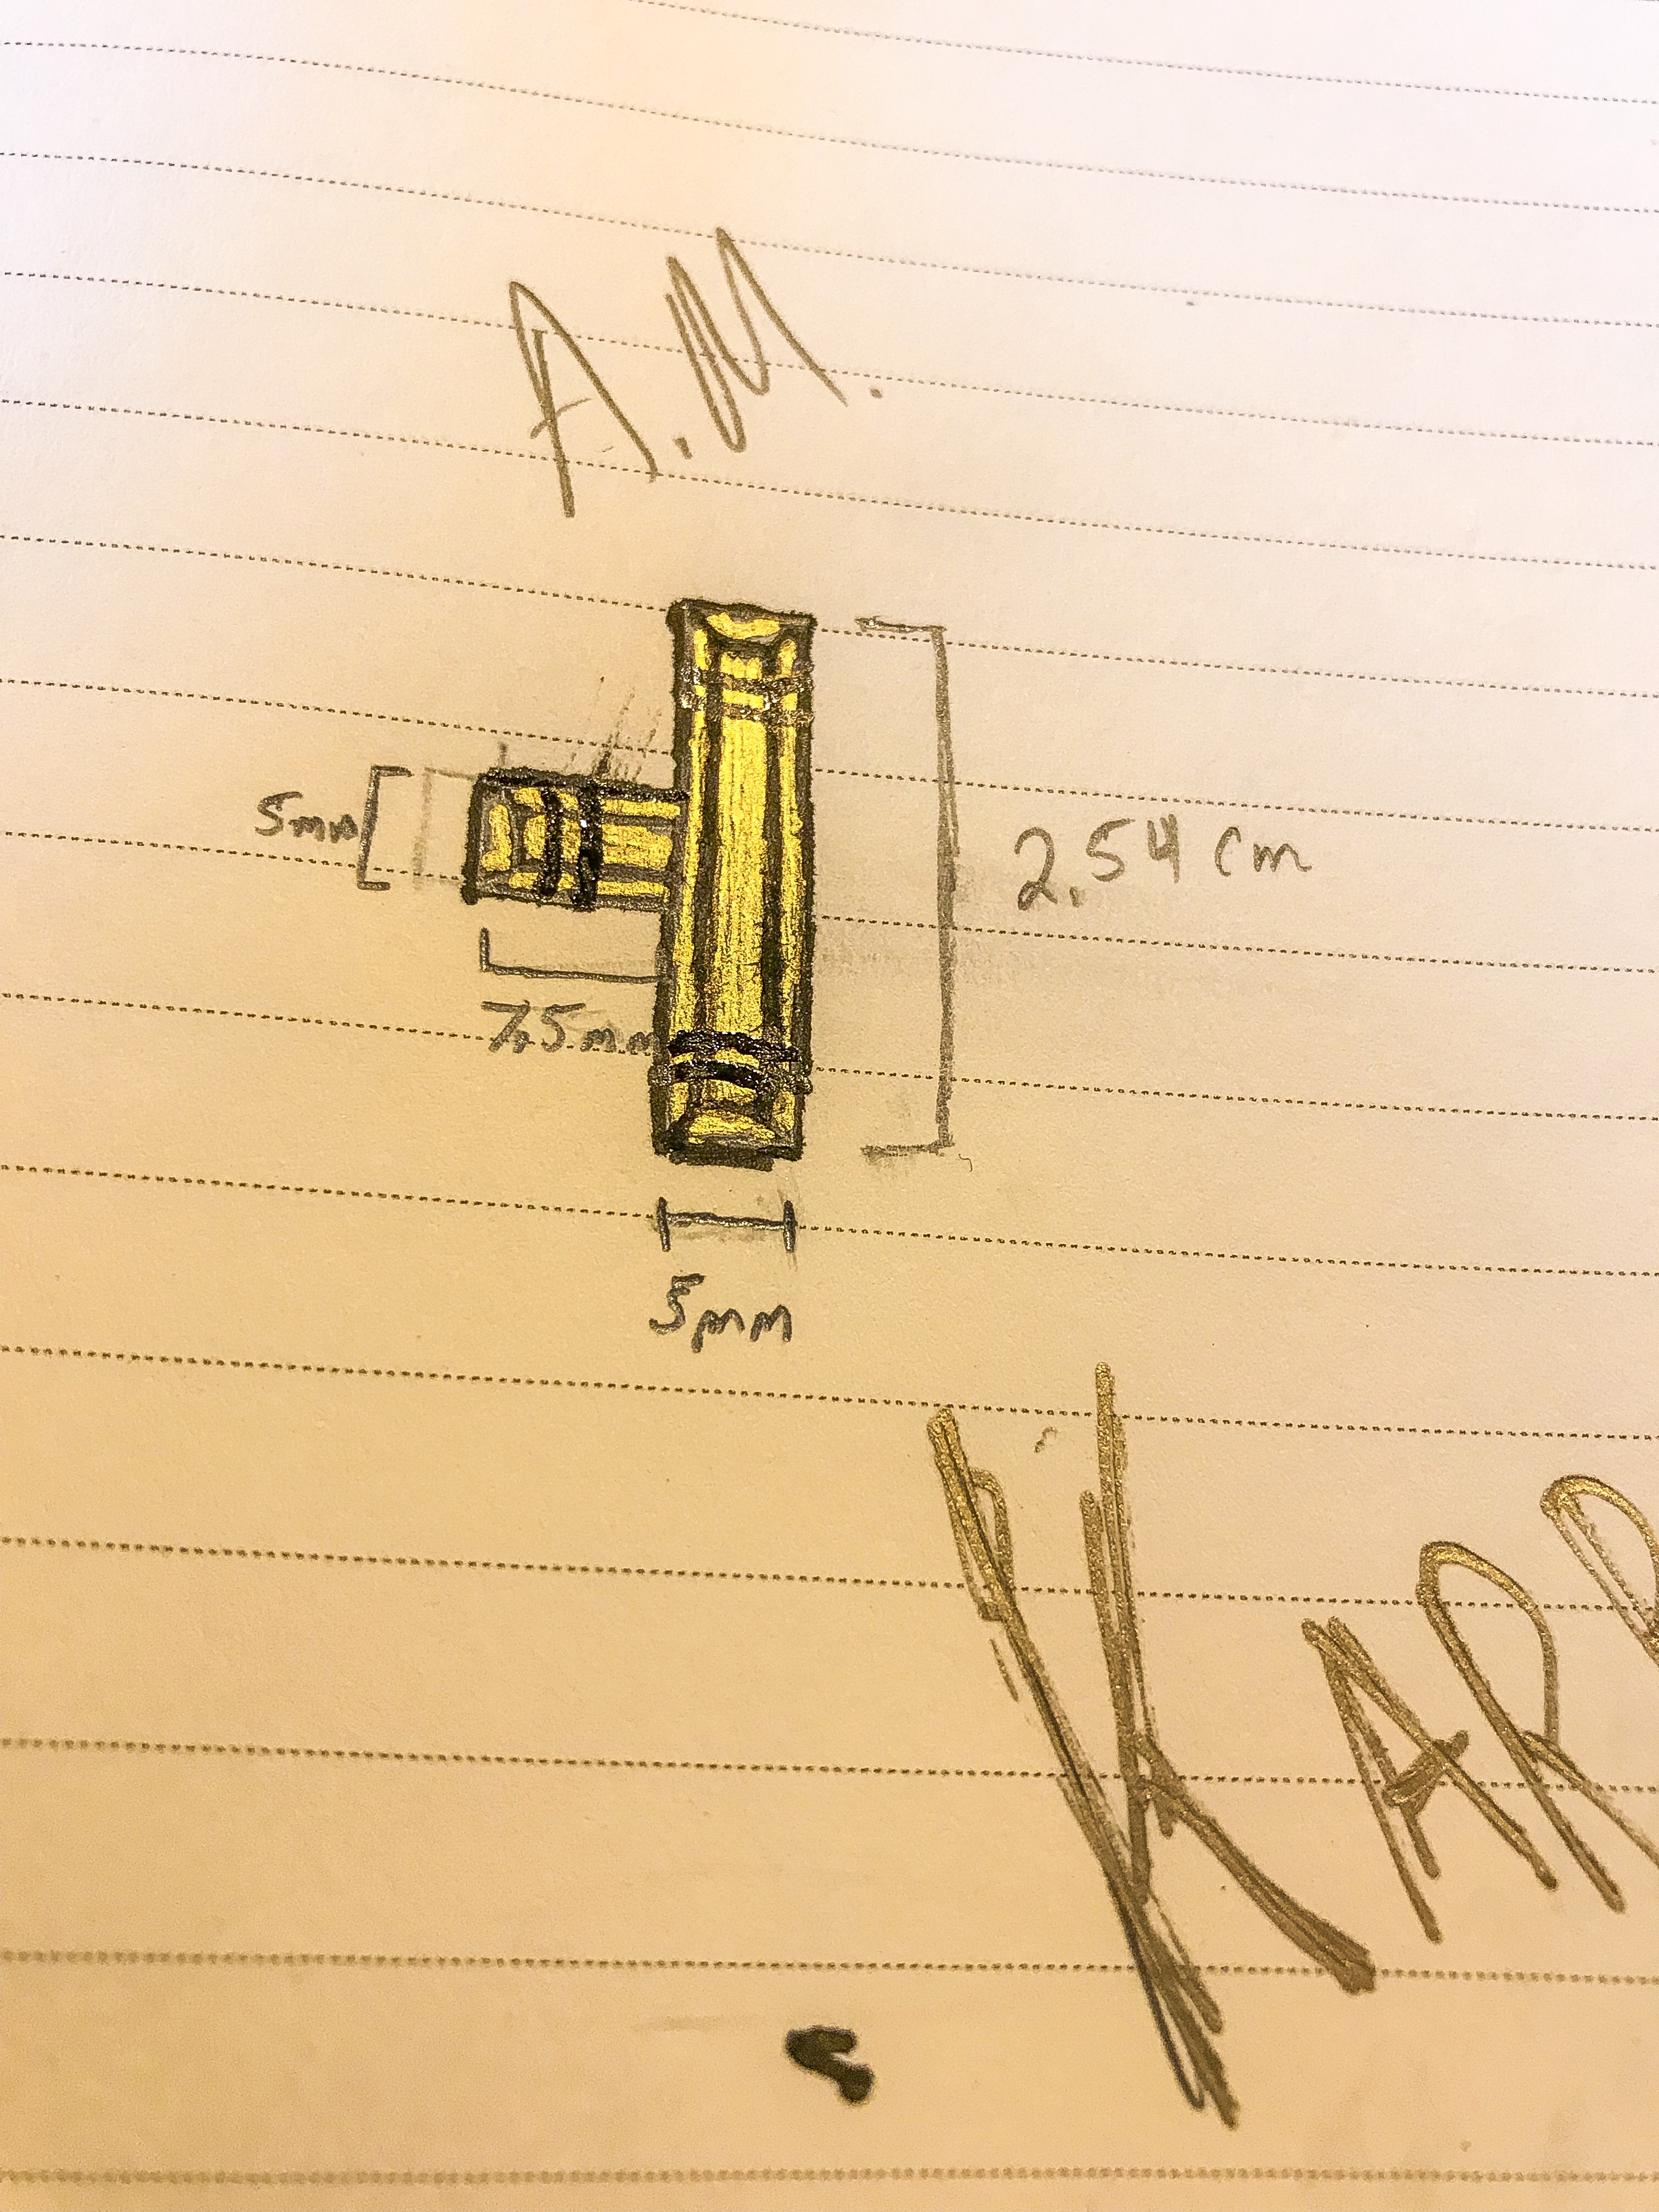 A.M.
5mm
2.54 cm
7.5mm
5mm
KAR